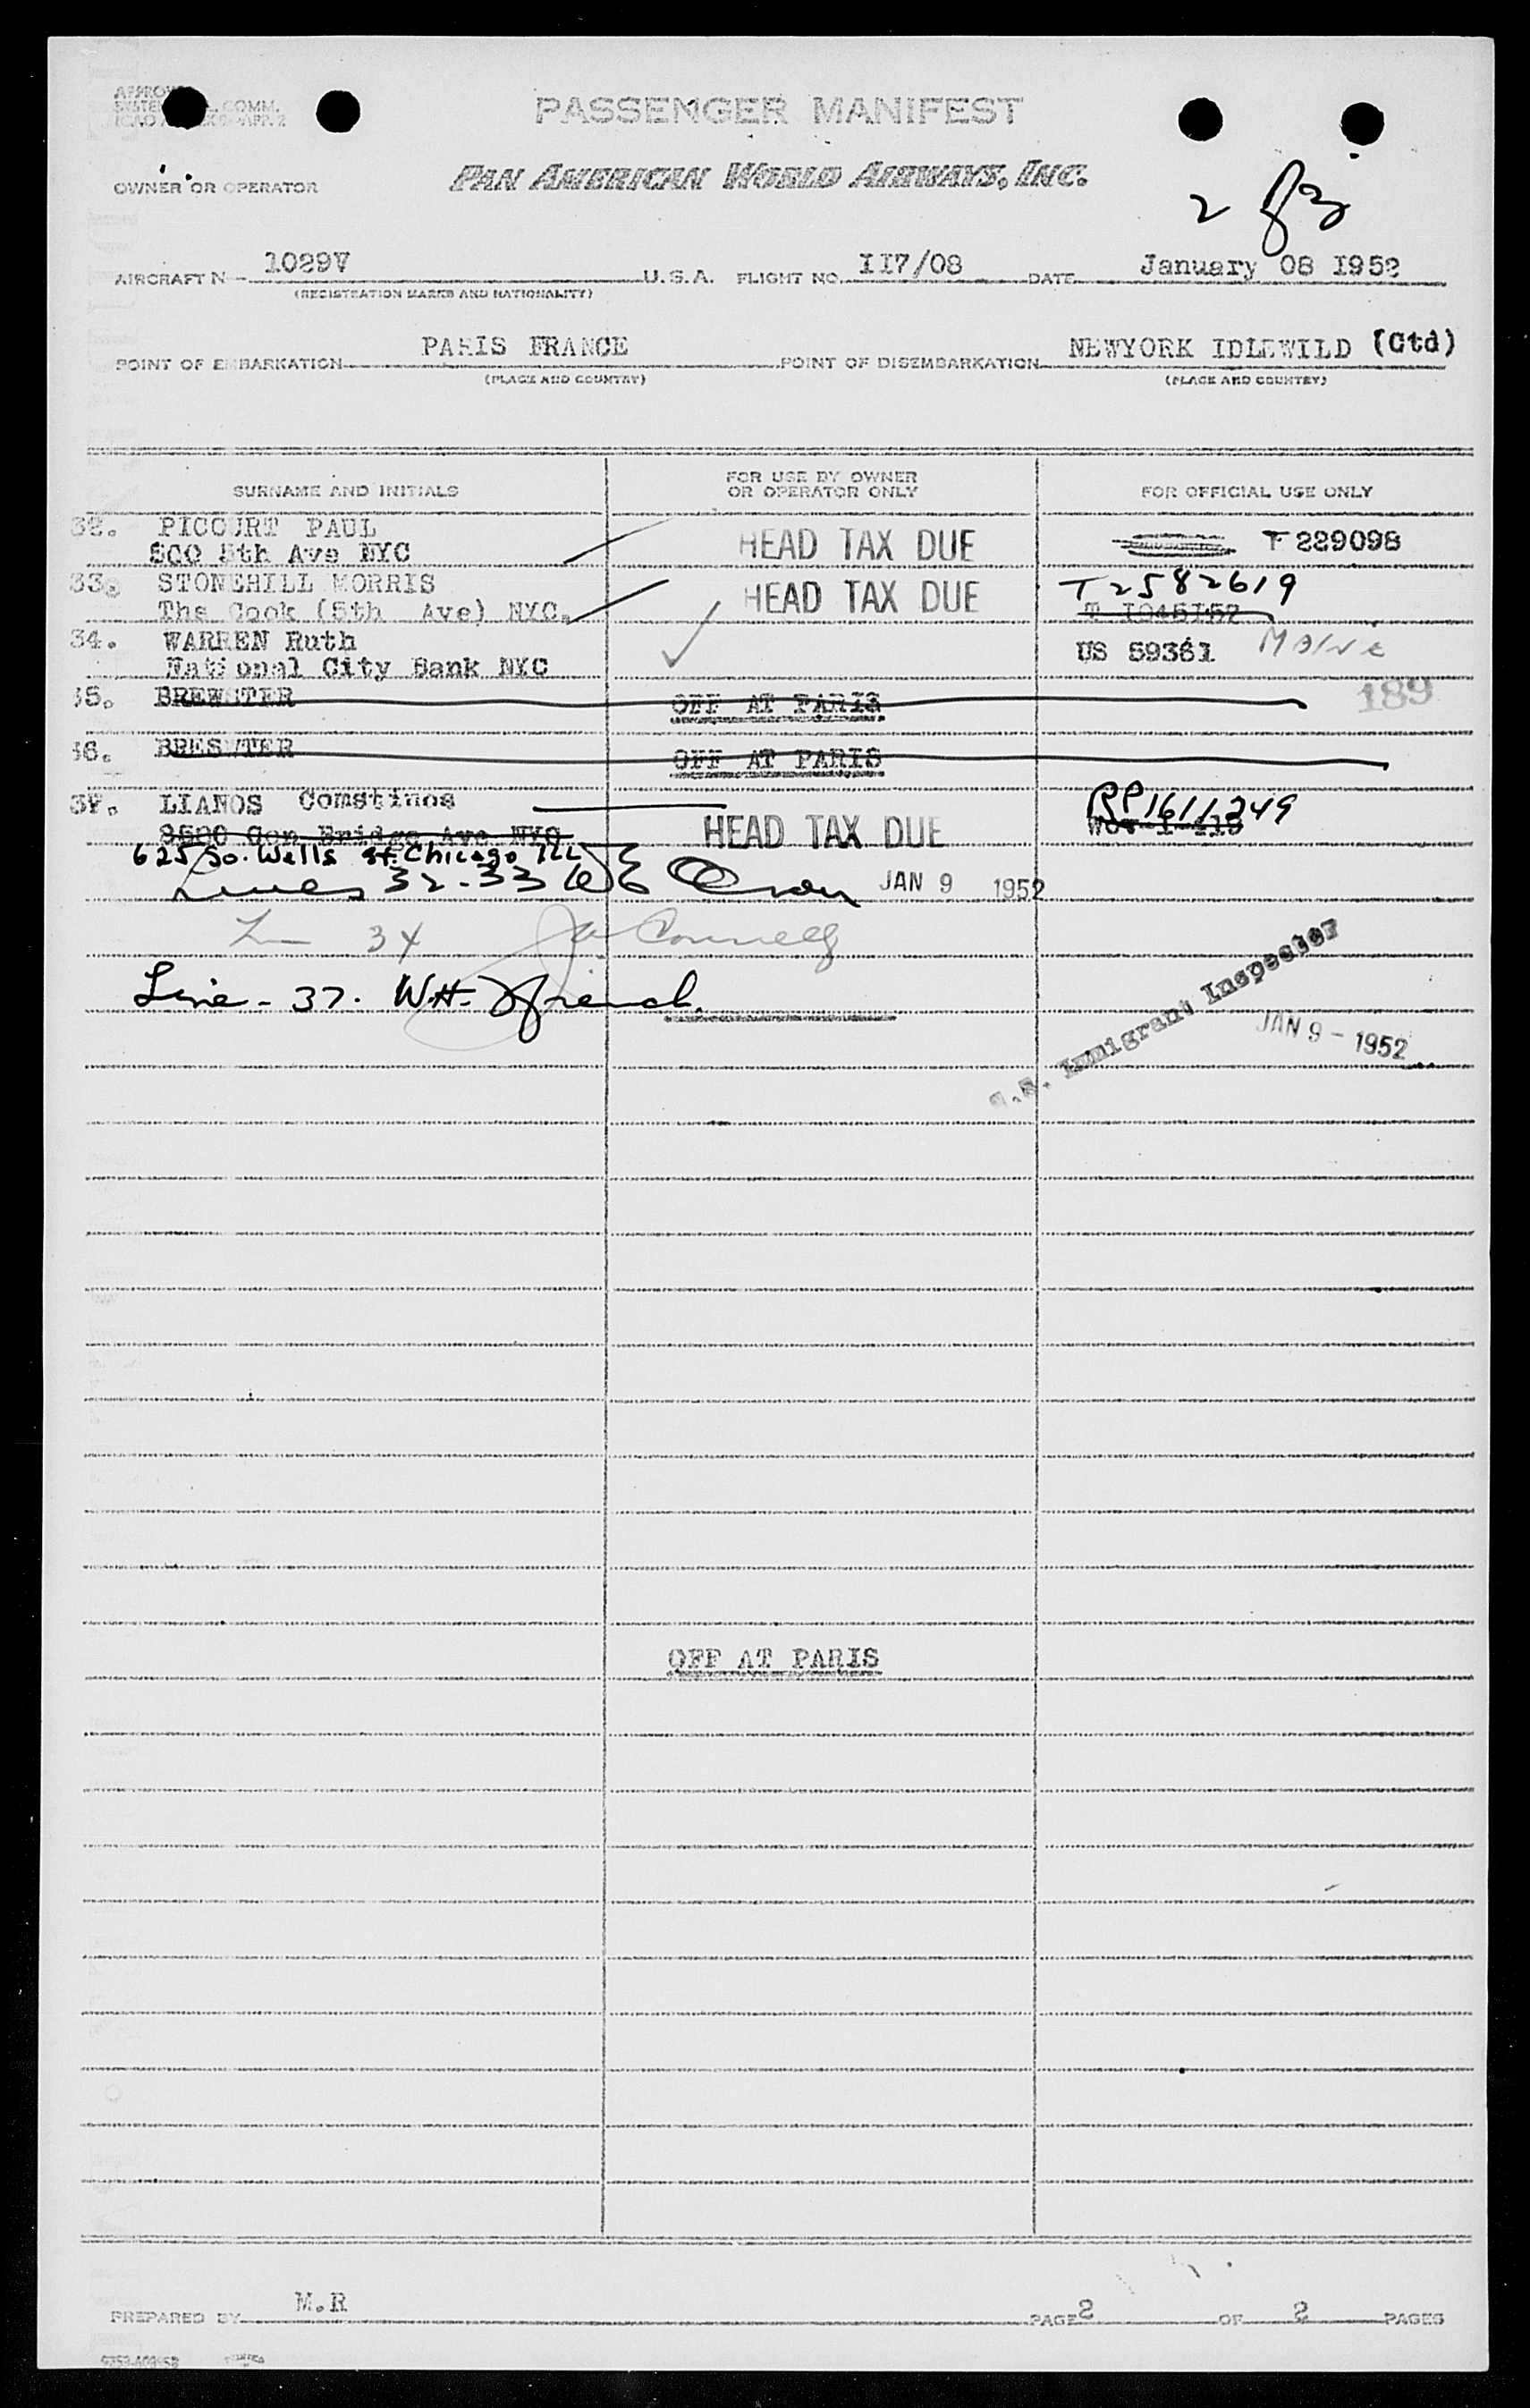 PASSENGER MANIFEST
OWNER OR OPERATOR
PAN AMERICAN WORLD AIRWAYS, INC.
2 of 3
AIRCRAFT N- 1029V U.S.A. FLIGHT NO. II7/08 DATE January 08 I952
(REGISTRATION MARKS AND NATIONALITY)
POINT OF EMBARKATION PARIS FRANCE POINT OF DISEMBARKATION NEWYORK IDLEWILD (Ctd)
(PLACE AND COUNTRY) (PLACE AND COUNTRY)
SURNAME AND INITIALS FOR USE BY OWNER OR OPERATOR ONLY FOR OFFICIAL USE ONLY
32. PICOURT PAUL HEAD TAX DUE T 229098
500 5th Ave NYC
33. STONEHILL MORRIS HEAD TAX DUE T 2582619
The Cook (5th Ave) NYC. T I045I57
34. WARREN Ruth
National City Bank NYC US 59361
35. BREWSTER OFF AT PARIS 189
36. BRESWTER OFF AT PARIS
37. LIANOS Comstinos RP1611249
Bridge Ave NYC HEAD TAX DUE
625 So. Wells St. Chicago ILL
Lines 32-33 Olson JAN 9 1952
34 Connelly
Line - 37. W.H. French.
Immigrant Inspector
JAN 9 - 1952
OFF AT PARIS
PREPARED BY M.R PAGE 2 OF 2 PAGES